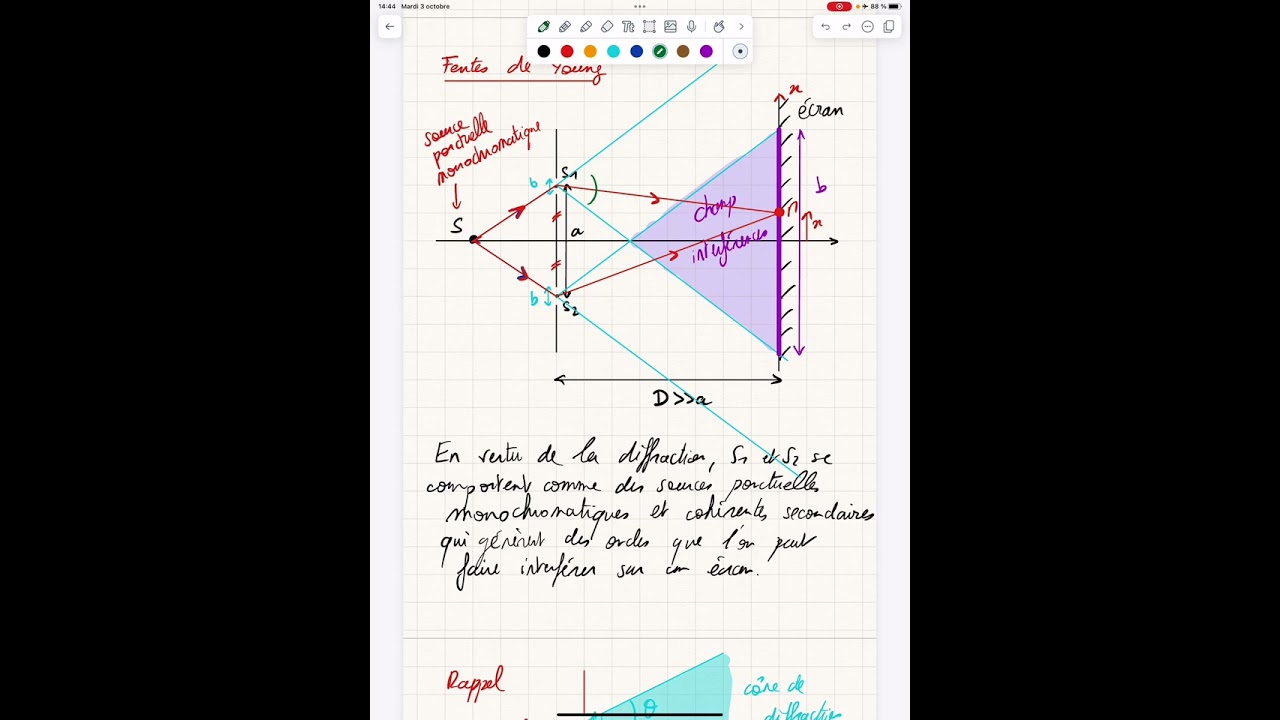 14:44 Mardi 3 octobre
88 %
Tt
Fentes de Young
x
écran
source
ponctuelle
monochromatique
b
S1
S
a
champ
interférences
b
M
x
b
S2
D>>a
En vertu de la diffraction, S1 et S2 se
comportent comme des sources ponctuelles
monochromatiques et cohérentes secondaires
qui génèrent des ondes que l'on peut
faire interférer sur un écran.
Rappel
θ
cône de
diffraction